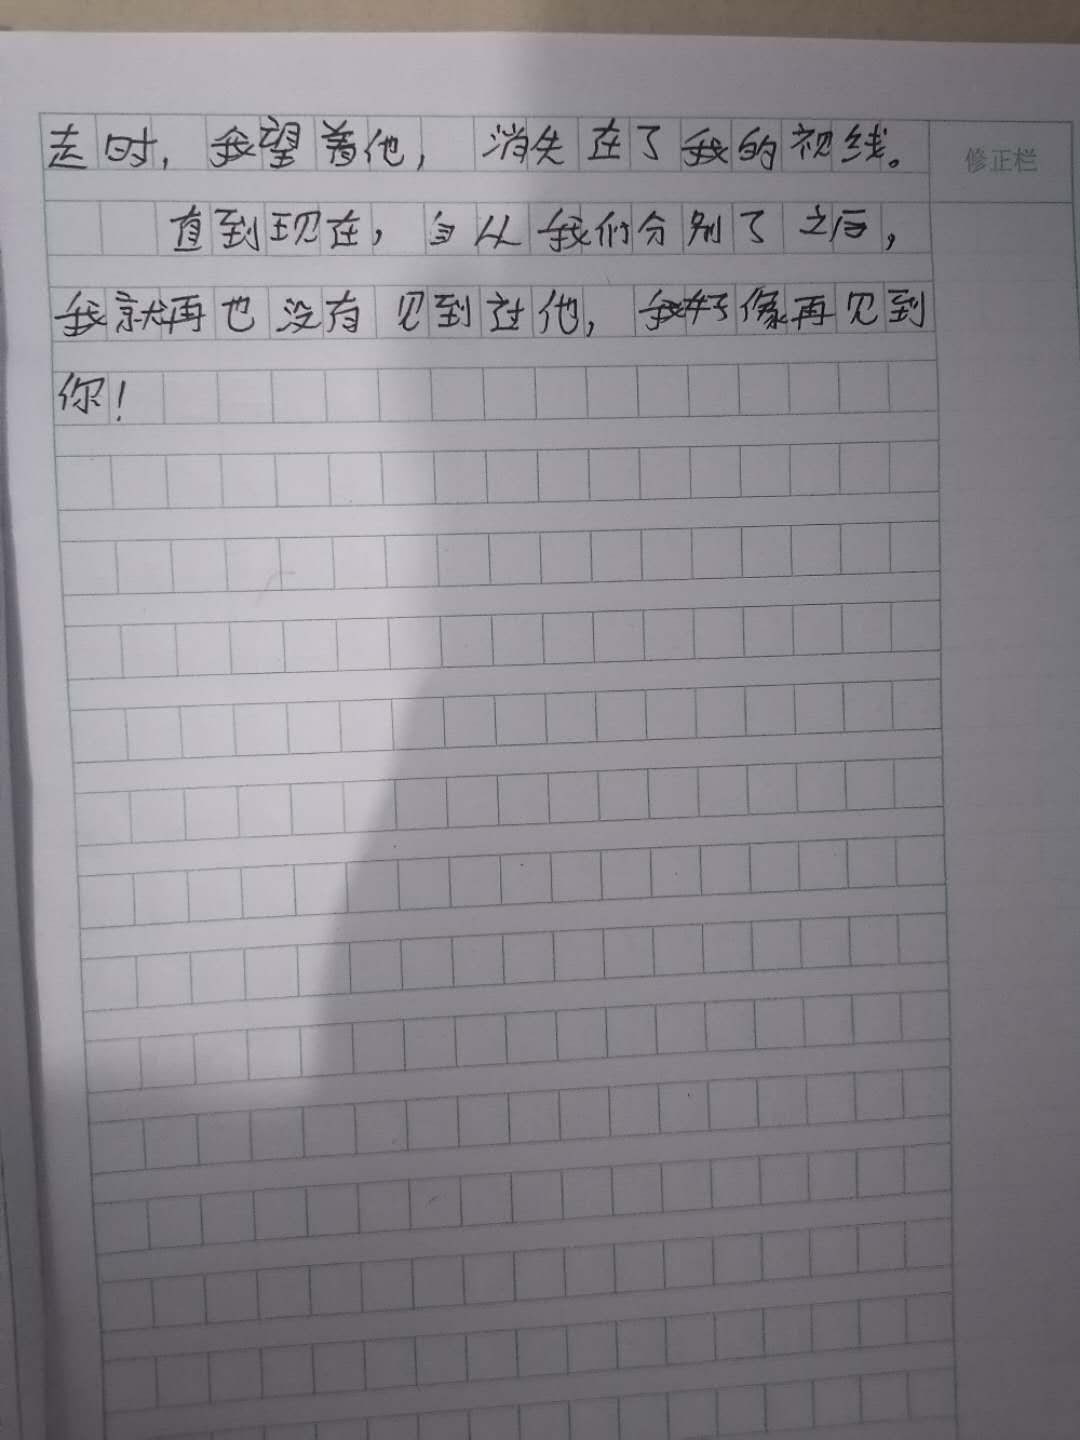 走时，我望着他，消失在了我的视线。
修正栏
直到现在，自从我们分别了之后，
我就再也没有见到过他，我好像再见到
你！